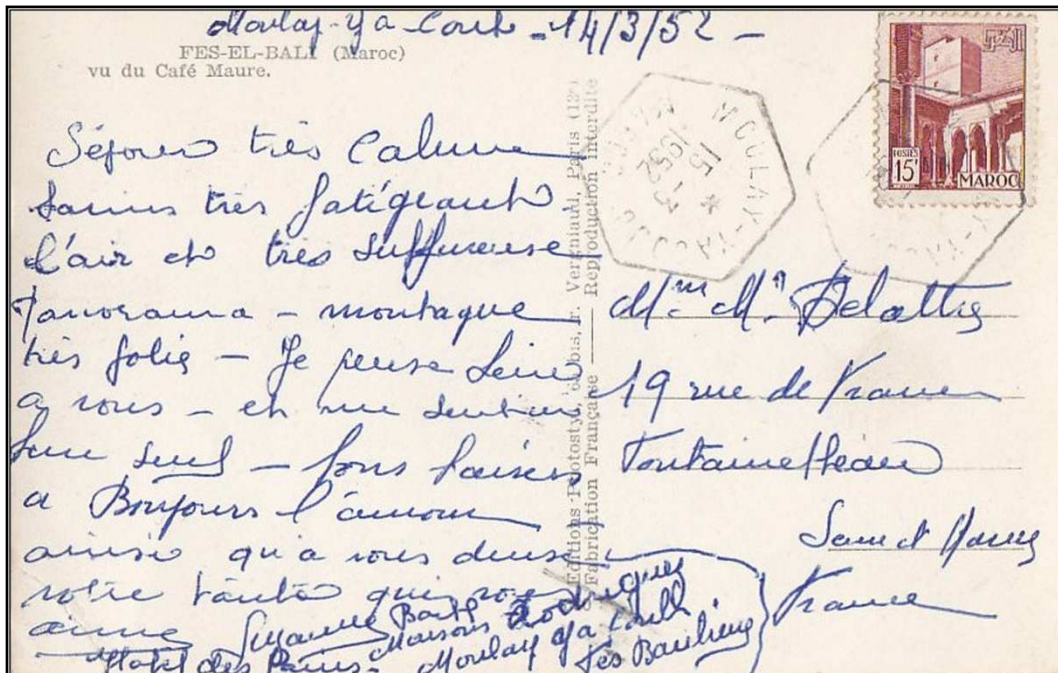 Moulay-Ya-Coub - 14/3/52 -
FES-EL-BALI (Maroc)
vu du Café Maure.
Séjour très Calme
bains très fatigeant
l'air et très suffureuse
Panorama - montague
très jolie - Je pense bien
a vous - et me sentir
bien seul - bons baisers
a Bonjours l'amour
ainsi qu'a vous deux
votre tante qui vous
aime Suzanne
Hotel des Bains - Maisons Rodrigues
Moulay Ya Coub
Fès Banlieue
Editions Photostyl, bis, r. Vergniaud, Paris (13e)
Fabrication Française — Reproduction interdite
MOULAY-YACOUB
15 * 3
1952
MAROC
POSTES
15F
MAROC
Mme Mr Delattre
19 rue de France
Fontainebleau
Seine et Marne
France